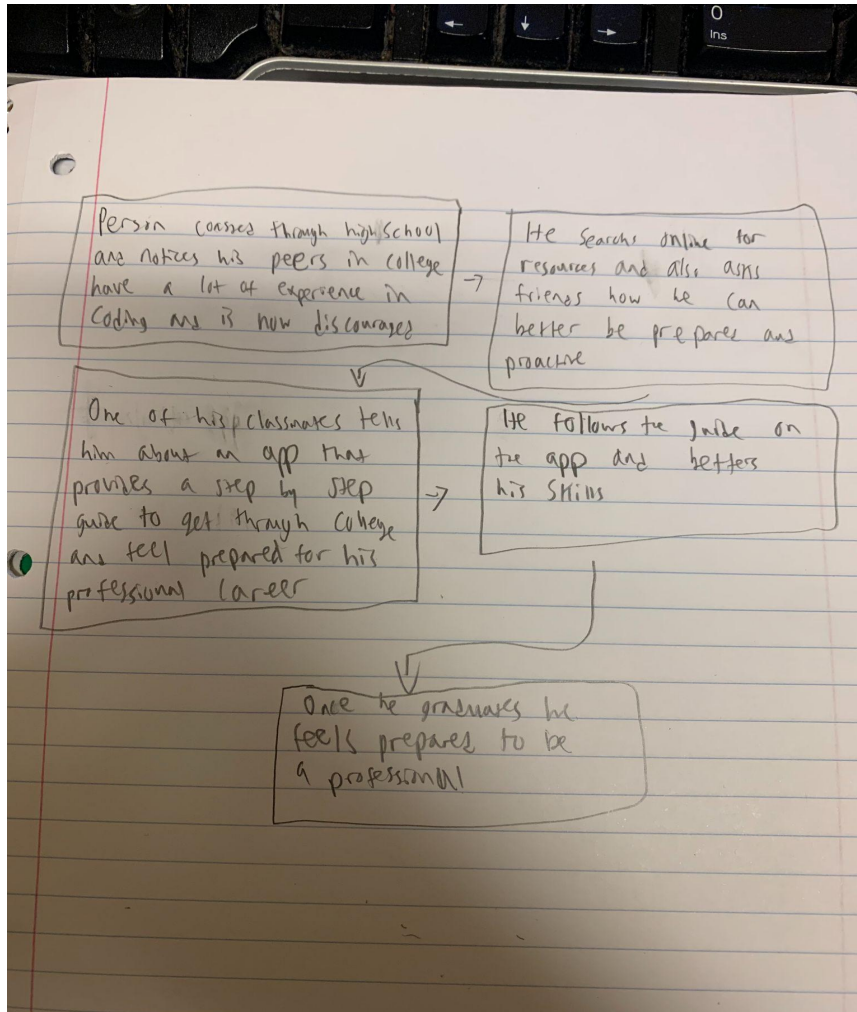 0
Ins
Person coassed through high school
and notices his peers in college
have a lot of experience in
Coding and is now discouraged
He searchs online for
resources and also asks
friends how he can
better be prepared and
proactive
One of his classmates tells
him about an app that
provides a step by step
guide to get through College
and feel prepared for his
professional Career
He follows the guide on
the app and betters
his skills
Once he graduates he
feels prepared to be
a professional